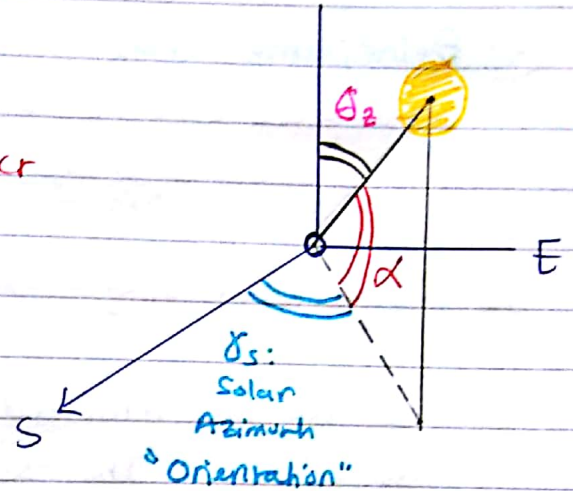 θz
cr
E
α
γs:
Solar
Azimuth
"Orientation"
S